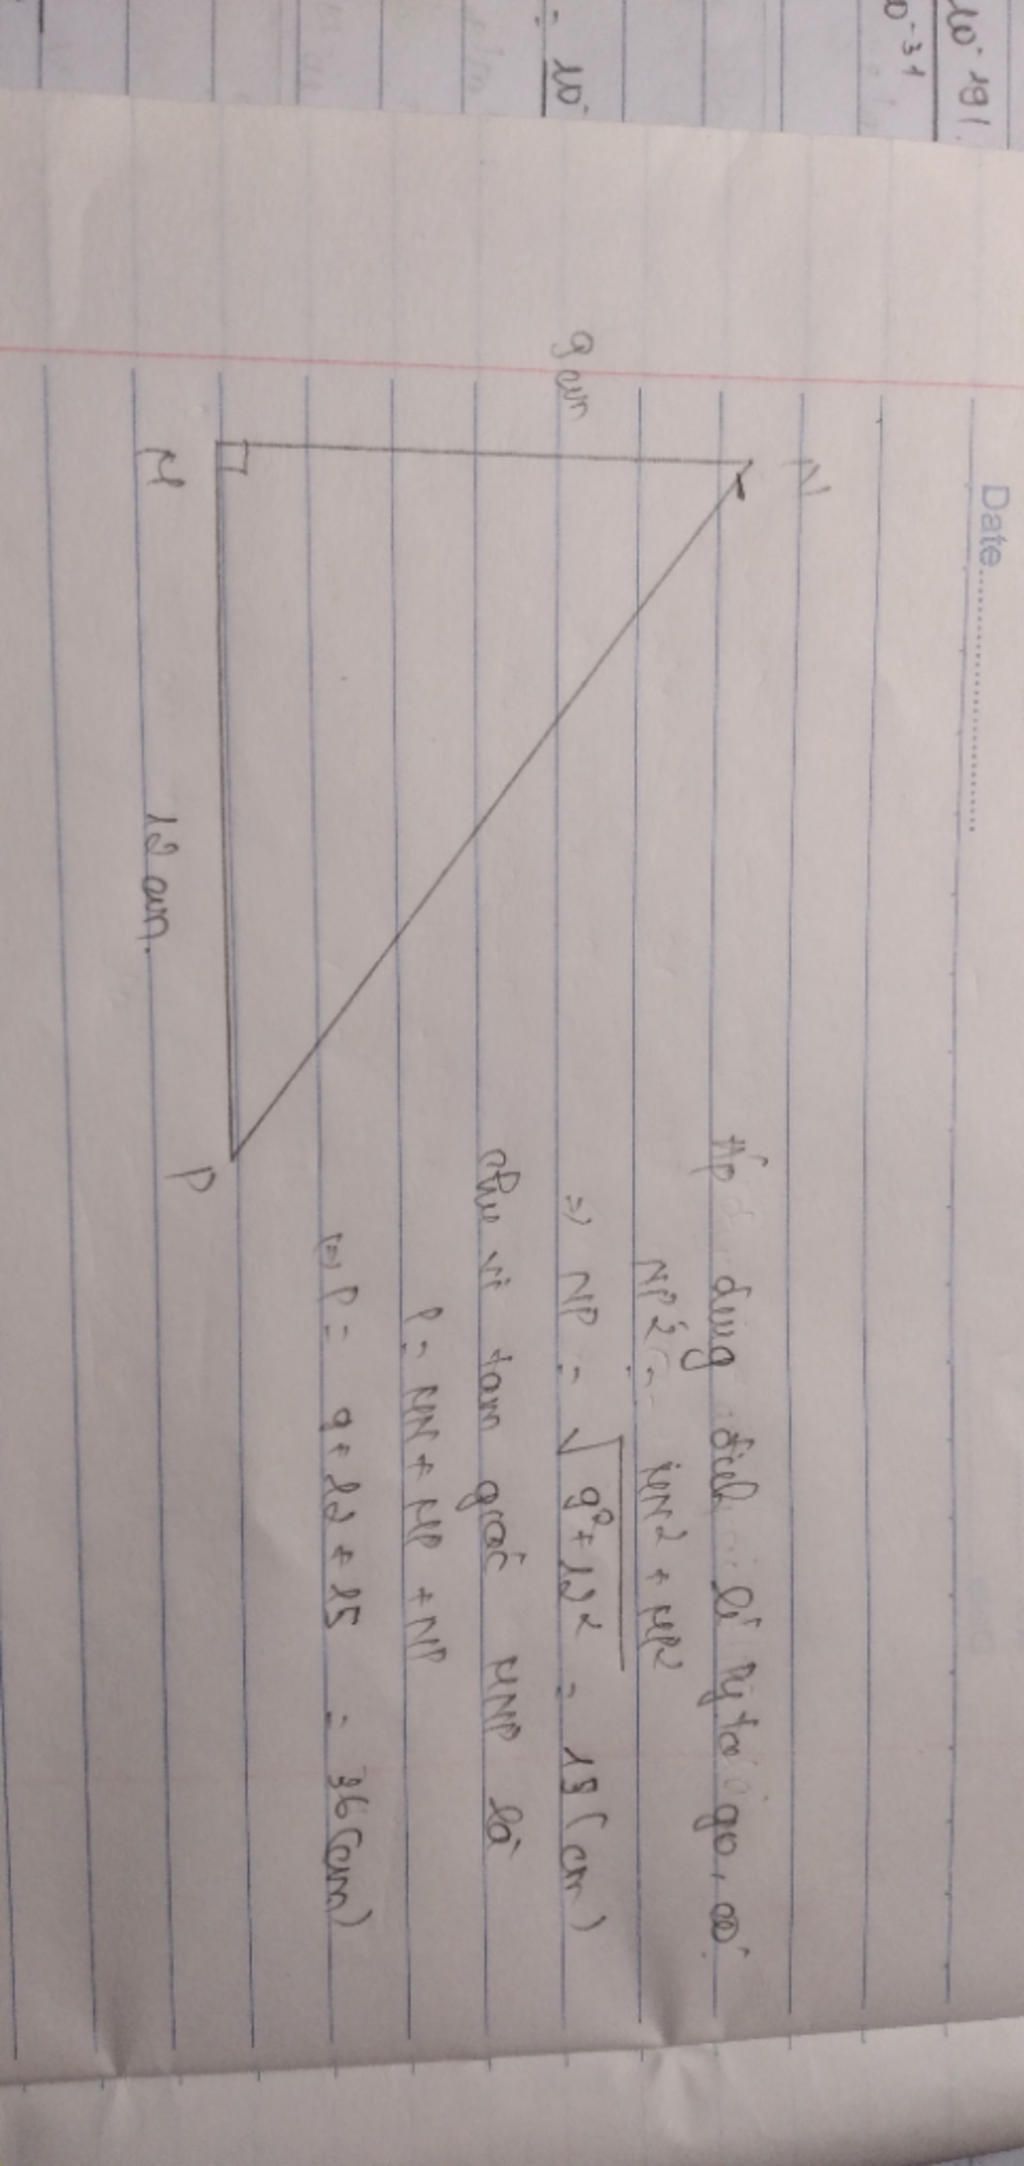 10⁻¹⁹ ١
10⁻³¹
= 10⁻
Date
N
9 cm
M
12 cm.
P
Áp dụng định lí Py ta go, có
NP² = MN² + MP²
=> NP = √9² + 12² = 15 (cm)
chu vi tam giác MNP là
P = MN + MP + NP
(=) P = 9 + 12 + 15 = 36 (cm)